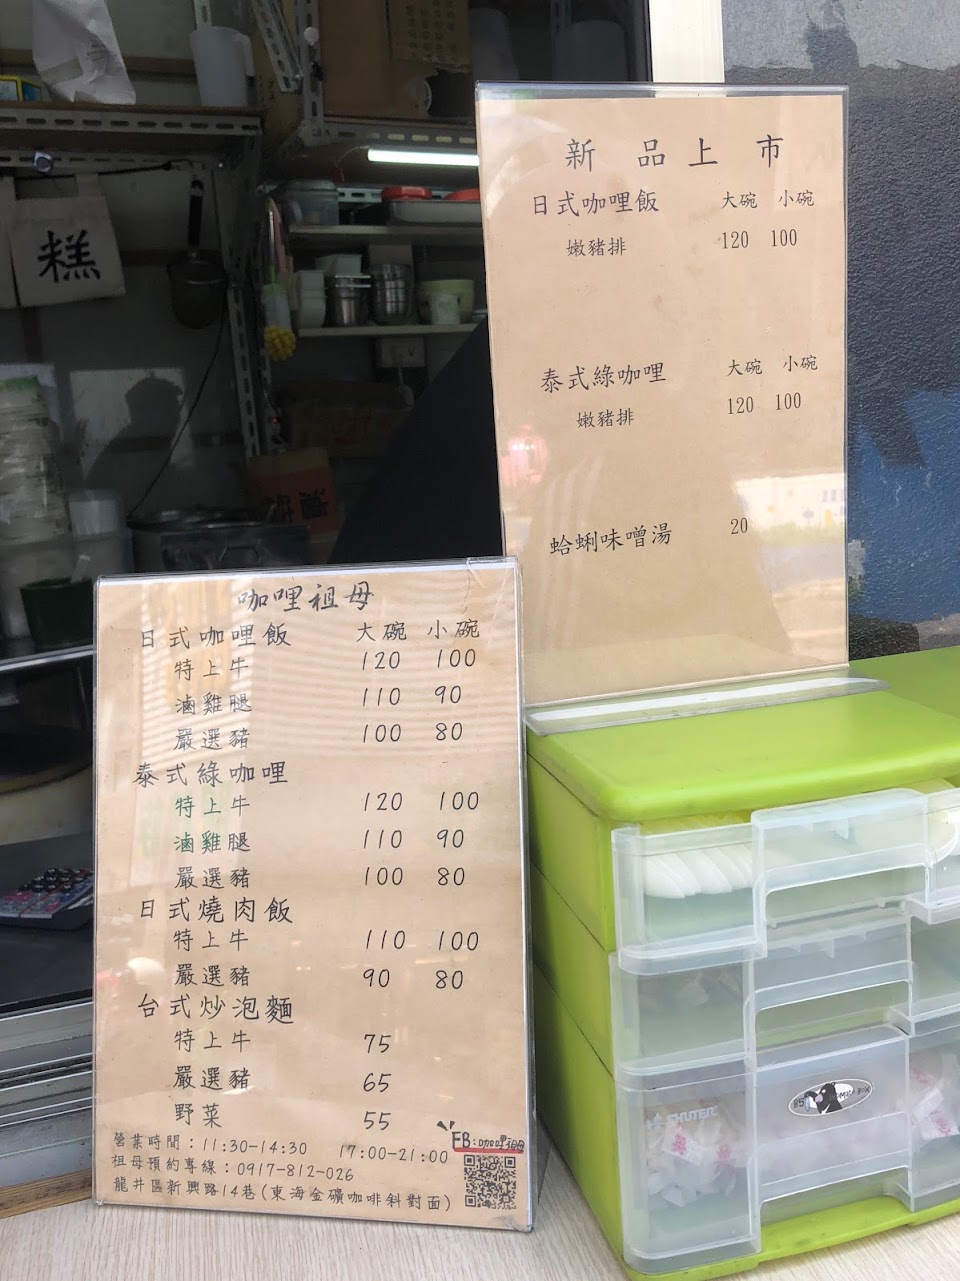 新品上市
日式咖哩飯 大碗 小碗
嫩豬排 120 100
泰式綠咖哩 大碗 小碗
嫩豬排 120 100
蛤蜊味噌湯 20
糕
咖哩祖母
日式咖哩飯 大碗 小碗
特上牛 120 100
滷雞腿 110 90
嚴選豬 100 80
泰式綠咖哩
特上牛 120 100
滷雞腿 110 90
嚴選豬 100 80
日式燒肉飯
特上牛 110 100
嚴選豬 90 80
台式炒泡麵
特上牛 75
嚴選豬 65
野菜 55
營業時間：11:30-14:30 17:00-21:00
祖母預約專線：0917-812-026
龍井區新興路14巷(東海金礦咖啡斜對面)
FB:咖哩祖母
SHUTER